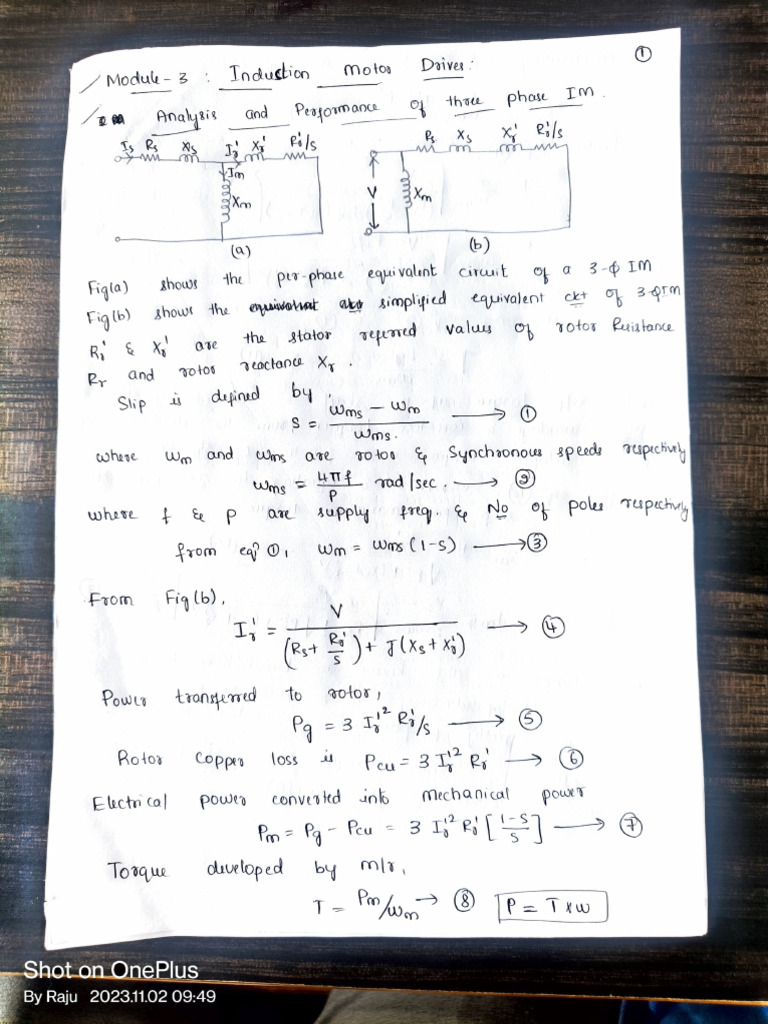 ①
Module-3 : Induction Motor Drives:
Analysis and Performance of three phase IM.
Is Rs Xs Ir' Xr' Rr'/s
Rs Xs Xr' Rr'/s
Im
Xm
V
Xm
(a)
(b)
Fig(a) shows the per-phase equivalent circuit of a 3-ϕ IM
Fig(b) shows the simplified equivalent ckt of 3-ϕIM
Rr' & Xr' are the stator referred values of rotor Resistance
Rr and rotor reactance Xr.
Slip is defined by,
S = (ωms - ωm)/ωms. → ①
where ωm and ωms are rotor & Synchronous speeds respectively
ωms = 4πf/P rad/sec. → ②
where f & p are supply freq. & No of poles respectively
from eqn ①, ωm = ωms (1-S) → ③
From Fig(b),
Ir' = V/((Rs + Rr'/s) + J(Xs + Xr')) → ④
Power transferred to rotor,
Pg = 3 Ir'² Rr'/s → ⑤
Rotor Copper loss is Pcu = 3 Ir'² Rr' → ⑥
Electrical power converted into mechanical power
Pm = Pg - Pcu = 3 Ir'² Rr' [(1-S)/S] → ⑦
Torque developed by m/r,
T = Pm/ωm → ⑧ P = T×ω
Shot on OnePlus
By Raju 2023.11.02 09:49